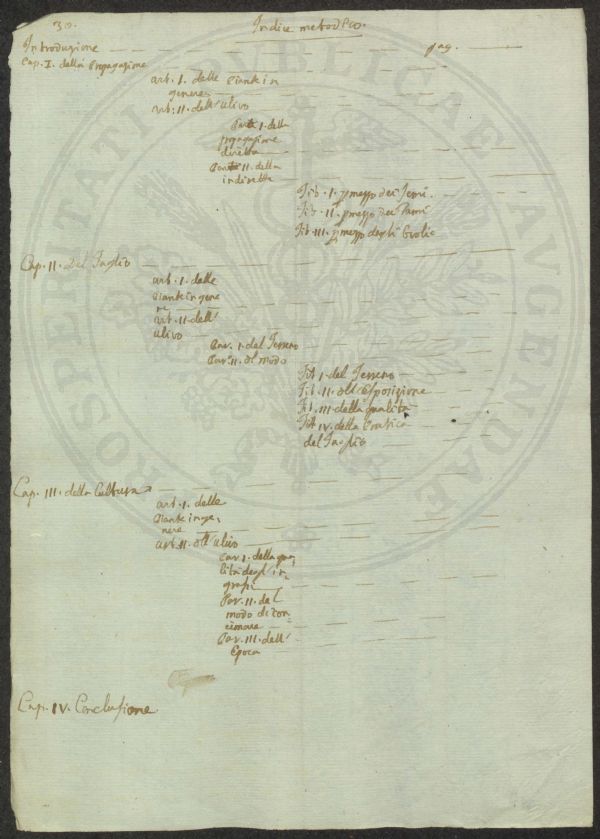 30.
Indice metodico.
Introduzione pag.
Cap. I. della Propagazione
art. I. delle Piante in
genere
art. II. dell'Ulivo
Part. I. della
propagazione
diretta
Part. II. della
indiretta
Tit. I. p mezzo dei Semi.
Tit. II. p mezzo dei Rami
Tit. III. p mezzo degli Ovoli
Cap. II. Del Taglio
art. I. delle
Piante in gene
re
art. II. dell'
Ulivo
Par. I. del Terreno
Par. II. del modo
Tit. I. del Terreno
Tit. II. dell'Esposizione
Tit. III. della qualità
Tit. IV. della Pratica
del Taglio
Cap. III. della Cultura
art. I. delle
Piante in ge,
nere
art. II. dell'Ulivo
Par. I. della qua,
lità degl'in,
grassi
Par. II. del
modo di con,
cimare
Par. III. dell'
Epoca
Cap. IV. Conclusione.
PROSPERITATI PUBLICAE AUGENDAE